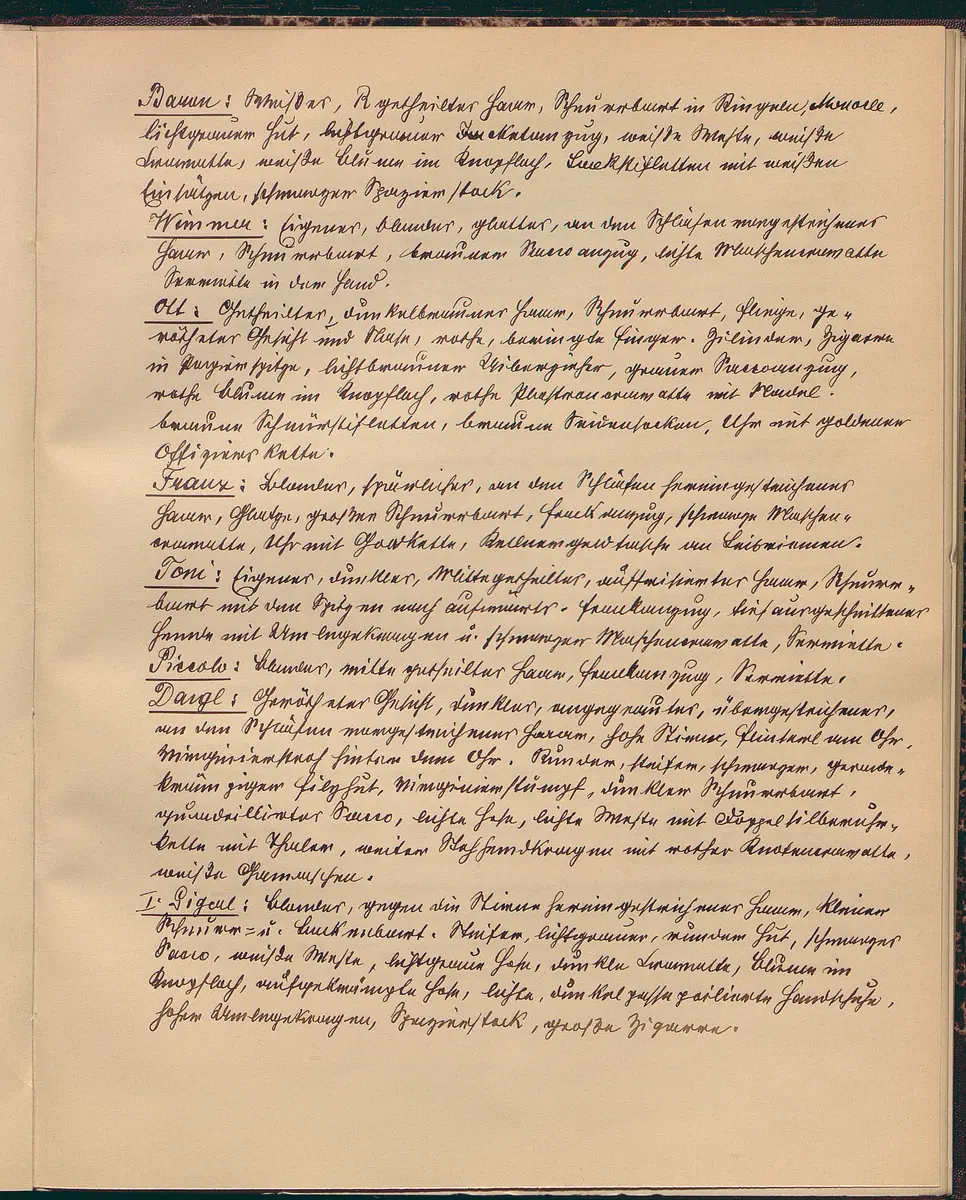 Baron: Weißes, R getheiltes Haar, Schnurrbart in Ringeln, Monocle,
lichtgrauer Hut, lichtgrauer Jacketanzug, weiße Weste, weiße
Cravatte, weiße Blume im Knopfloch, Lackstifletten mit weißen
Einsätzen, schwarzer Spazierstock.
Wimmer: Eigenes, blondes, glattes, an den Schläfen vorgestrichenes
Haar, Schnurrbart, brauner Saccoanzug, lichte Maschencravatte
Serviette in der Hand.
Ott: Getheiltes, dunkelbraunes Haar, Schnurrbart, Fliege, ge=
röthetes Gesicht und Nase, rothe, beringte Finger. Zilinder, Zigarre
in Papierspitze, lichtbrauner Uiberzieher, grauer Saccoanzug,
rothe Blume im Knopfloch, rothe Plastroncravatte mit Nadel.
braune Schnürstifletten, braune Seidensocken, Uhr mit goldener
Offizierskette.
Franz: Blondes, spärliches, an den Schläfen hereingestrichenes
Haar, Glatze, großer Schnurrbart, Frackanzug, schwarze Maschen=
cravatte, Uhr mit Goldkette, Kellnergeldtasche an Leibriemen.
Toni: Eigenes, dunkles, Mittegetheiltes, auffrisiertes Haar, Schnurr=
bart mit den Spitzen nach aufwärts. Frackanzug, tief ausgeschnittenes
Hemd mit Umlegekragen u. schwarzer Maschencravatte, Serviette.
Piccolo: Blondes, mitte getheiltes Haar, Frackanzug, Serviette.
Daigl: Geröthetes Gesicht, dunkles, angegrautes, übergestrichenes,
an den Schläfen vorgestrichenes Haar, hohe Stirne, Flinserl am Ohr,
Virginierstroh hinter dem Ohr. Runder, steifer, schwarzer, gerade=
krämpiger Filzhut, Virginierstumpf, dunkler Schnurrbart,
quadrillirtes Sacco, lichte Hose, lichte Weste mit Doppelsilberuhr=
kette mit Thaler, weiter Stehhemdkragen mit rother Knotencravatte,
weiße Gamaschen.
I. Gigerl: Blondes, gegen die Stirne hereingestrichenes Haar, kleiner
Schnurr= u. Backenbart. Steifer, lichtgrauer, runder Hut, schwarzes
Sacco, weiße Weste, lichtgraue Hose, dunkle Cravatte, Blume im
Knopfloch, aufgekrämpte Hose, lichte, dunkel passepoilierte Handschuhe,
hoher Umlegekragen, Spazierstock, große Zigarre.